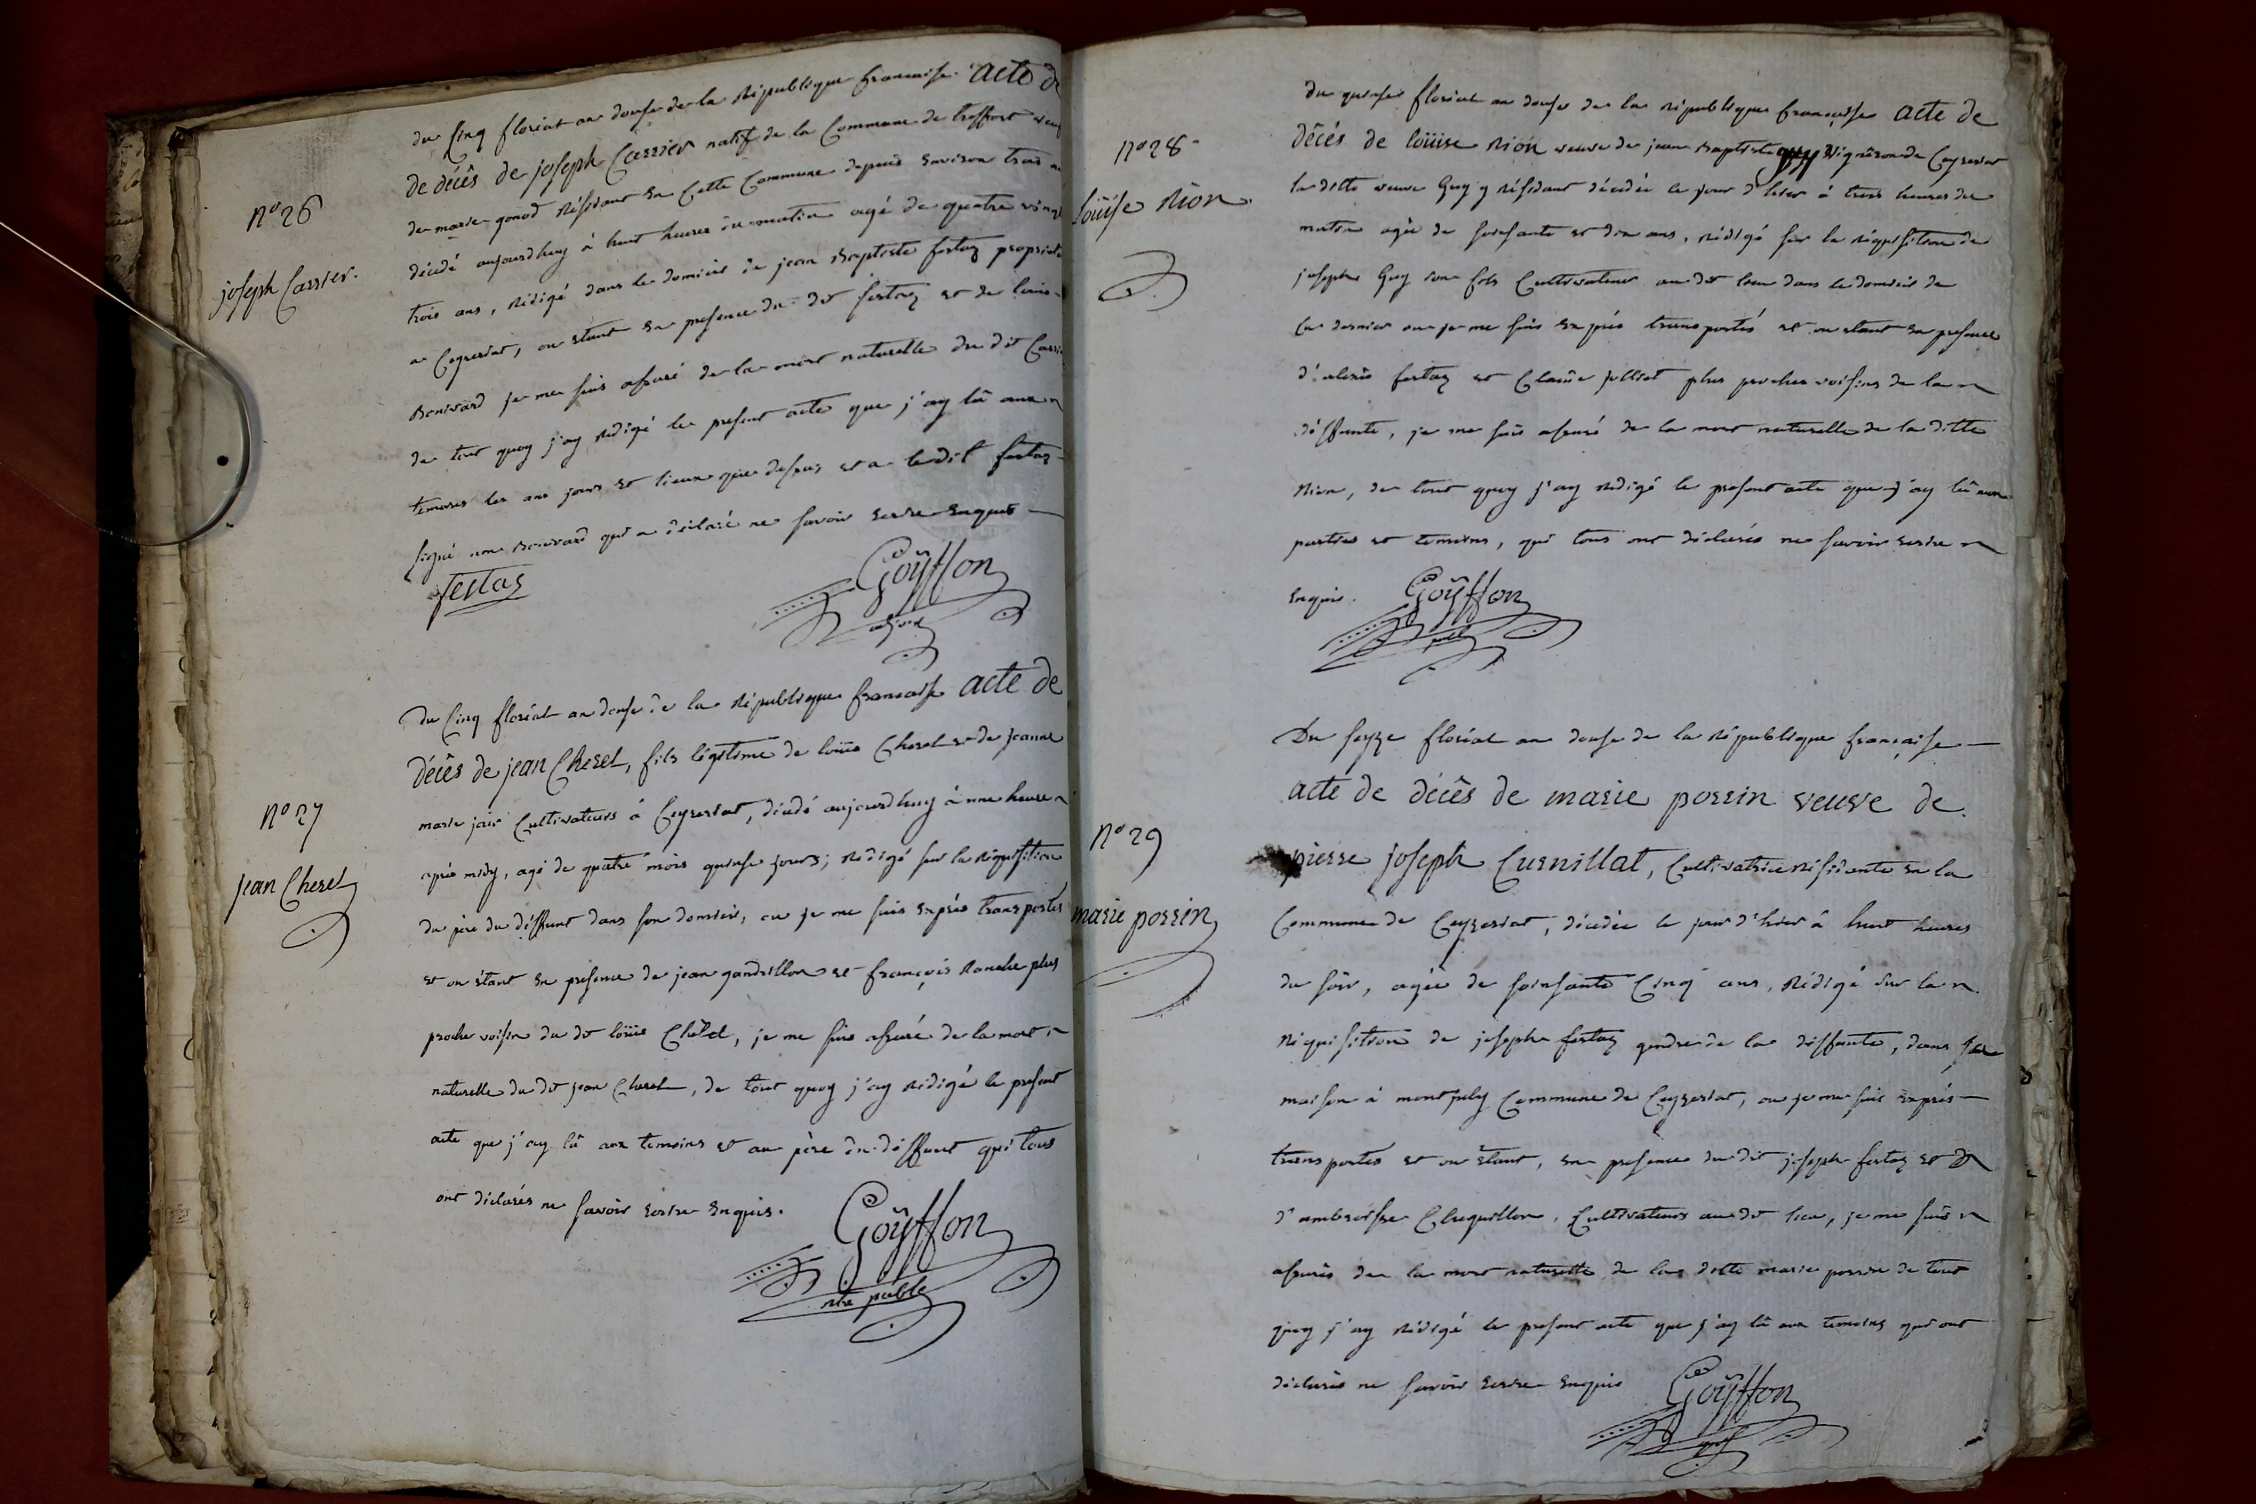 N° 26
joseph Carrier.
du Cinq floréal an douse de la République francaise. acte de
de décês de joseph Carrier natif de la Commune de treffort veuf
de marie gonod Résidant en Cette Commune depuis environ trois
décédé aujourdhuy à huit heures du matin agé de quatre vingt
trois ans, Rédigé dans le domicile de jean Baptiste fertaz propriet
a Ceyzeriat, ou etant en presence du dit fertaz et de louis
Bonivard je me suis assuré de la mort naturelle du dit Carrie
de tout quoy j'ay Rédigé le present acte que j'ay lû aux
temoins les an jours et lieux que dessus et a ledit fertaz
signé non Bonivard qui a déclaré ne savoir ecrire enquis
fertaz
Goÿffon
adjoint
N° 27
jean Cherel
Du Cinq floréal an douse de la République francaise acte de
décês de jean Cherel, fils légitime de loüis Cherel et de jeanne
marie Cultivateurs á Ceyzeriat, décédé aujourdhuy à une heure
après midy, agé de quatre mois quinse jours; Rédigé sur la Réquisition
du père du déffunt dans son domicile, ou je me suis exprés transportés
et on étant en présence de jean gandrillon et françois Ranche plus
proche voisin du dit loüis Chérel, je me suis assuré de la mort
naturelle du dit jean Cherel, de tout quoy j'ay Rédigé le present
acte que j'ay lû aux temoins et au pére du déffunt qui tous
ont déclarés ne savoir ecrire enquis.
Goÿffon
ptre
N° 28
Loüise Rion
du quinse floréal an douse de la république francaise acte de
Décés de loüise Rion veuve de jean Baptiste Guy Vigneron de Ceyzeriat
la ditte veuve Guy y résidant décédée le jour d'hier à trois heures du
matin agée de soixsante et dix ans, rédigé sur la réquisition de
joseph Guy son fils Cultivateur au dit lieu dans le domicile de
Ce dernier ou je me suis exprés transportés et ou etant en presence
d'alexis fertaz et Claude julliet plus proches voisins de la
déffunte, je me suis assuré de la mort naturelle de la ditte
Rion, de tout quoy j'ay rédigé le present acte que j'ay lû aux
parties et temoins, qui tous ont déclarés ne savoir ecrire
enquis.
Goÿffon
N° 29
marie porrin
Du seyze floréal an douse de la République française
acte de décês de marie porrin veuve de
pierre joseph Curnillat, Cultivatrice Résidente en la
Commune de Ceyzeriat, décédée le jour d'hier à huit heures
du soir, agée de soixsante Cinq ans, Rédigé sur la
Réquisition de joseph fertaz gendre de la déffunte, dans sa
maison à montjuly Commune de Ceyzeriat, ou je me suis exprés
transportés et ou étant, en presence du dit joseph fertaz et
d'ambroise Chiquillon, Cultivateurs au dit lieu, je me suis
assurés de la mort naturelle de la ditte marie porrin de tout
quoy j'ay Rédigé le present acte que j'ay lû aux temoins qui ont
déclarés ne savoir ecrire enquis
Goÿffon